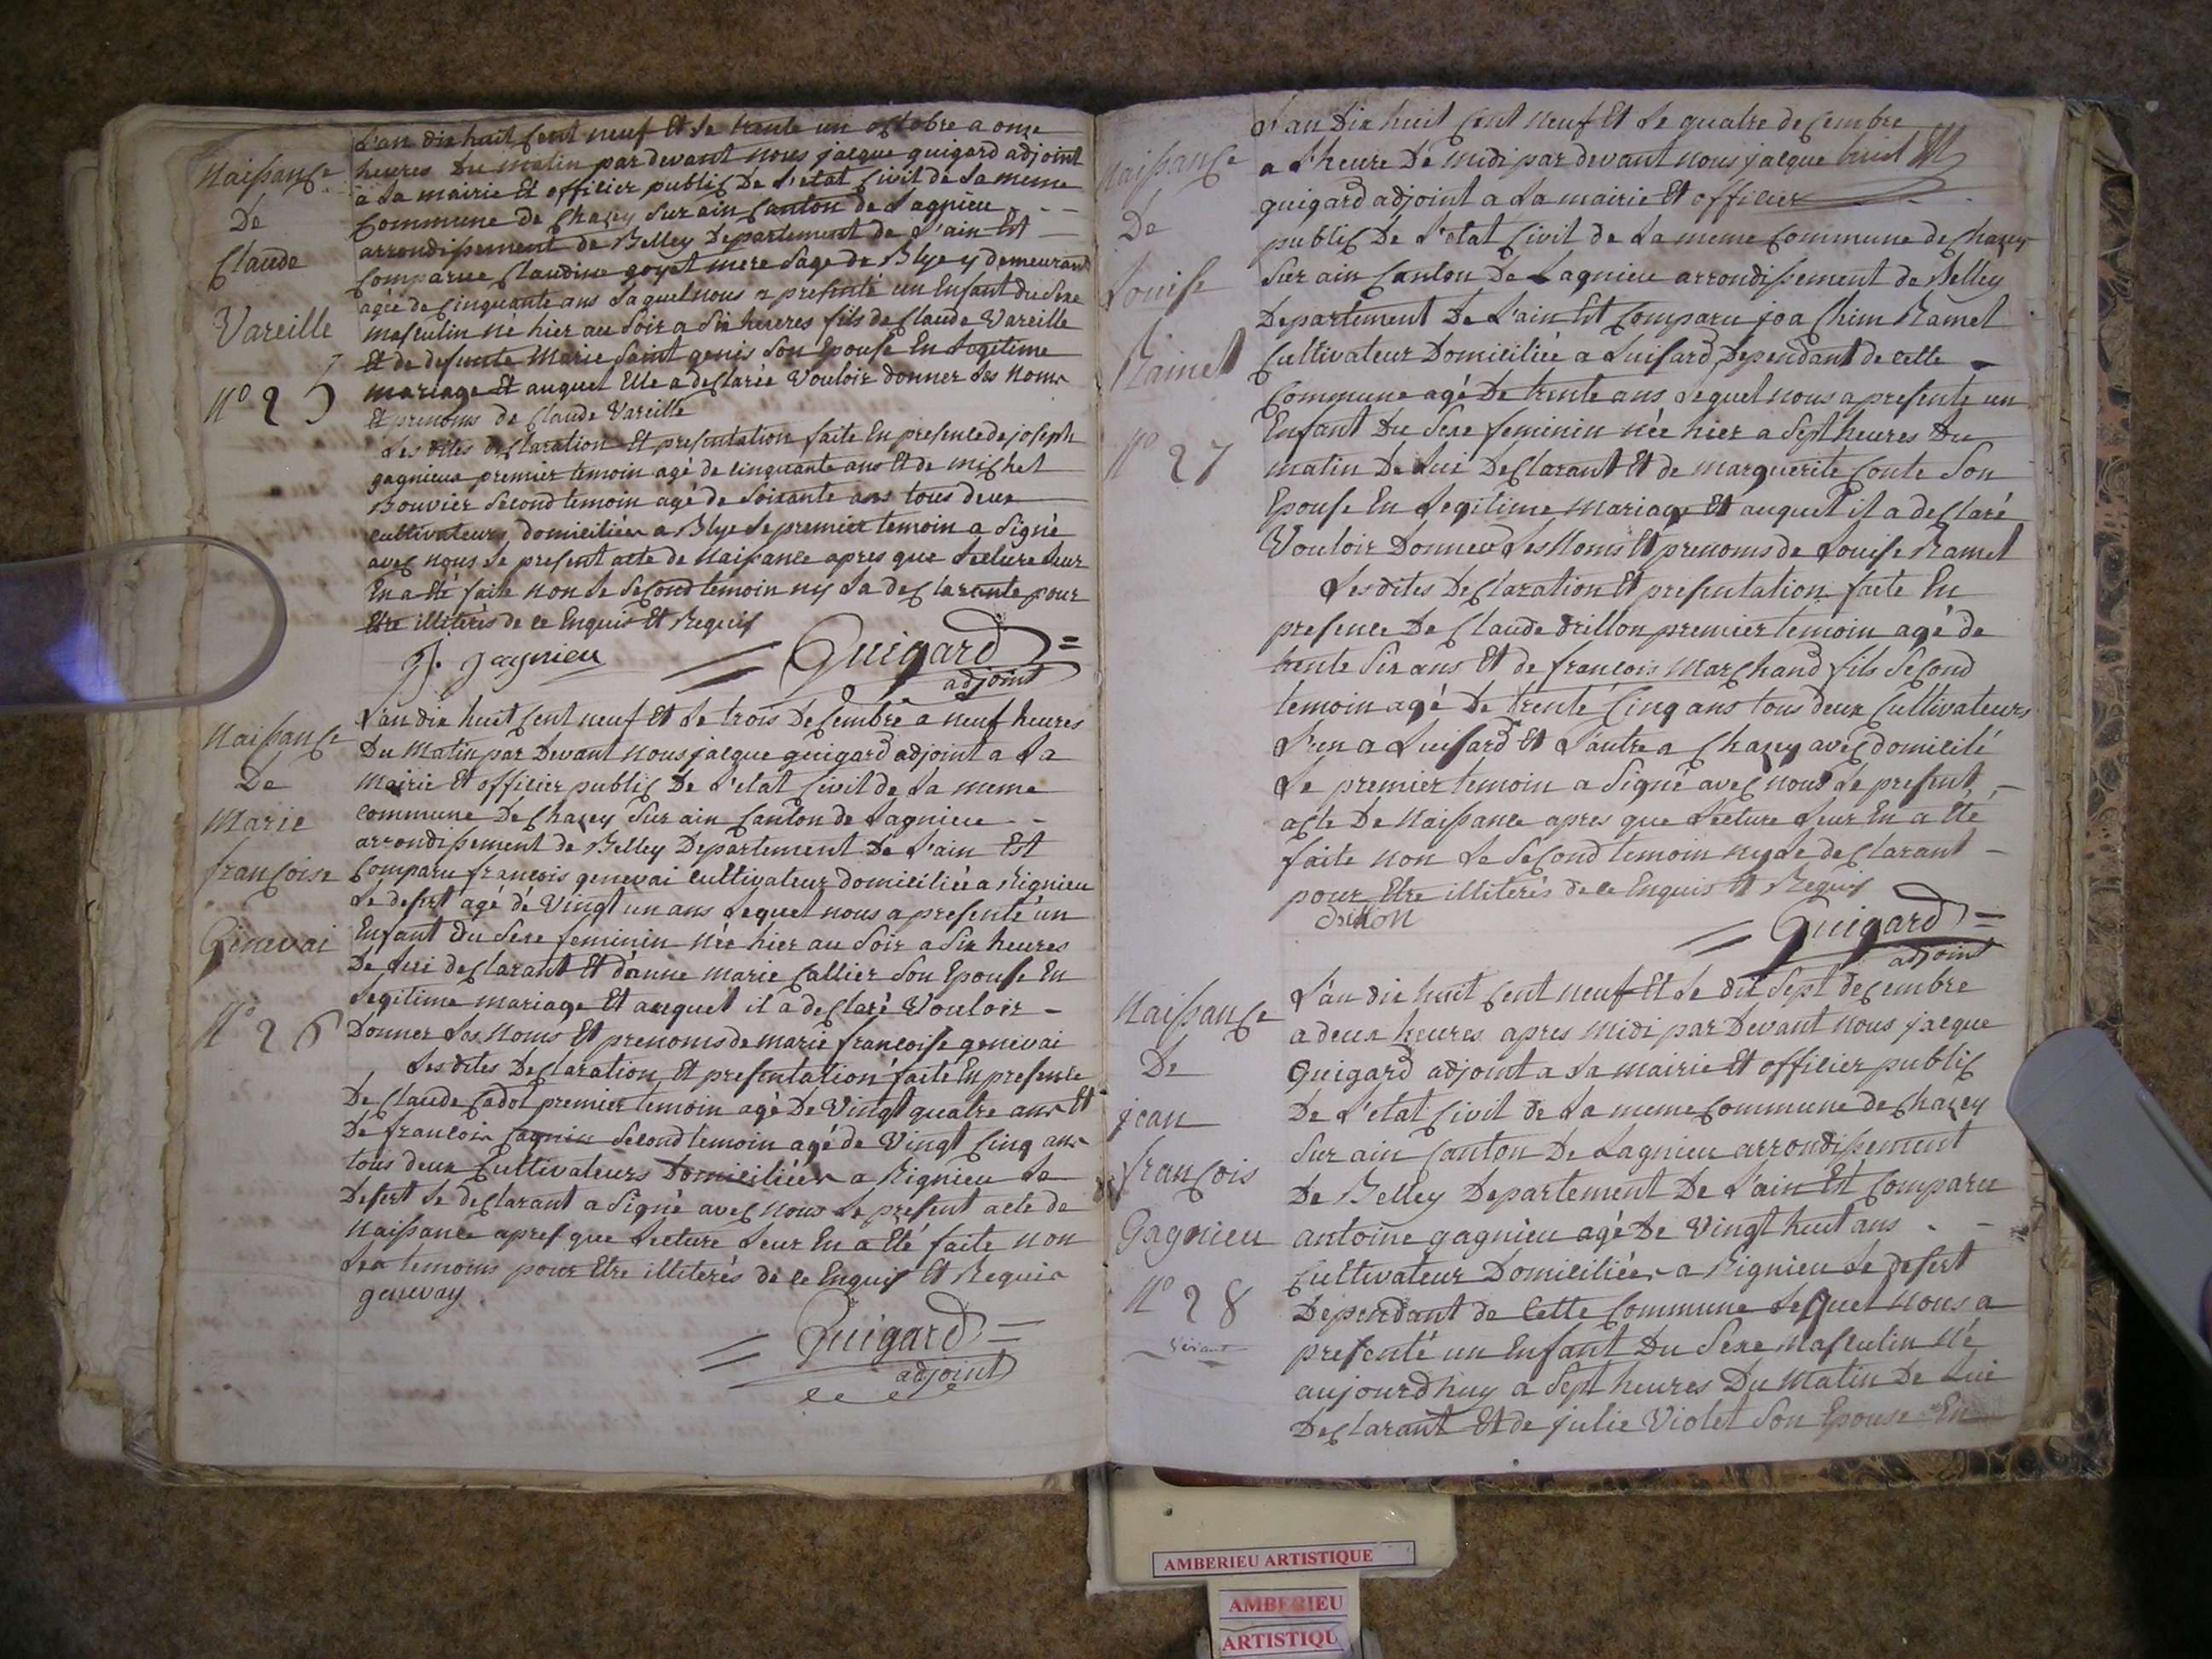 Naissance
De
Claude
Vareille
N° 25
L'an dix huit cent neuf Et le trente un octobre a onze
heures Du matin par devant nous jacque guigard adjoint
a La mairie Et officier public De L'etat Civil de La meme
Commune de Chazey Sur ain Canton de Lagnieu - -
arrondissement de Belley Departement de L'ain Est
Comparue Claudine goyet mere Sage de Blye y demeurant
agée de Cinquante ans Laquel nous a presenté un Enfant du Sexe
masculin né hier au Soir a Six heures fils de Claude Vareille
Et de defunte Marie Saint genis Son Epouse En Legitime
mariage Et auquel Elle a declarée Vouloir donner Les Noms
Et prenoms de Claude Vareille
Les dites declaration Et presentation faite En presence de joseph
gagnieux premier temoin agé de cinquante ans Et de michel
Bouvier Second temoin agé de Soixante ans tous deux
cultivateurs domiciliées a Blye Le premier temoin a Signé
avec nous Le present acte de Naissance apres que Lecture Leur
En a Eté faite non Le Second temoin ny La declarante pour
Etre illiterés de ce Enquis Et Requis
J. gagnieu
= Guigard =
adjoint
Naissance
De
Marie
françoise
Genevai
N° 26
L'an dix huit Cent neuf Et Le trois Decembre a neuf heures
Du Matin par Devant nous jacque guigard adjoint a La
Mairie Et officier public De L'etat Civil de La meme
commune De Chazey Sur ain Canton de Lagnieu - -
arrondissement de Belley Departement De L'ain Est
Comparu francois genevai cultivateur domiciliée a Rignieu
Le desert agé de Vingt un ans Lequel nous a presenté un
Enfant du Sexe feminin née hier au Soir a Six heures
De Lui declarant Et d'anne marie Callier Son Epouse En
Legitime mariage Et auquel il a declaré Vouloir -
Donner Les Noms Et prenoms de marie francoise genevai
Les dites Declaration Et presentation faite En presence
De Claude Cadot premier temoin agé De Vingt quatre ans Et
De francois Cagnin Second temoin agé de Vingt Cinq ans
tous deux Cultivateurs Domiciliées a Rignieu Le
Desert Le declarant a Signé avec nous Le present acte de
Naissance apres que Lecture Leur En a Eté faite non
Les temoins pour Etre illiterés de ce Enquis Et Requis
genevay
= Guigard =
adjoint
Naissance
De
Louise
Ramet
N° 27
L'an Dix huit Cent neuf Et Le quatre decembre
a L'heure De midi par devant nous jacque
guigard adjoint a La mairie Et officier
public De L'etat Civil de La meme Commune de Chazey
Sur ain Canton De Lagnieu arrondissement de Belley
Departement De L'ain Est Comparu joachim Ramet
Cultivateur Domiciliée a Luisard Dependant de cette -
Commune agé De trente ans Lequel nous a presenté un
Enfant Du Sexe feminin née hier a Sept heures Du
matin De Lui Declarant Et de marguerite Conte Son
Epouse En Legitime mariage Et auquel il a declaré
Vouloir Donner Les Noms Et prenoms de Louise Ramet
Les dites Declaration Et presentation faite En
presence De Claude drillon premier temoin agé de
trente Six ans Et de francois Marchand fils Second
temoin agé De trente Cinq ans tous deux Cultivateurs
L'un a Luisard Et L'autre a Chazey avec domicilé
Le premier temoin a Signé avec nous Le present -
acte De Naissance apres que Lecture Leur En a Eté
faite non Le Second temoin ny Le declarant -
pour Etre illiterés de ce Enquis Et Requis
drillon
= Guigard =
adjoint
Naissance
De
jean
françois
Gagnieu
N° 28
L'an dix huit Cent neuf Et Le dix Sept decembre
a deux heures apres midi par Devant nous jacque
Guigard adjoint a La mairie Et officier public
De L'etat Civil de La meme Commune de Chazey
Sur ain Canton De Lagnieu arrondissement
De Belley Departement De L'ain Est Comparu
antoine gagnieu agé De Vingt huit ans - -
Cultivateur Domiciliées a Rignieu Le desert
Dependant de Cette Commune Lequel nous a
presenté un Enfant Du Sexe Masculin Né
aujourdhuy a Sept heures Du Matin De Lui
Declarant Et de julie Violet Son Epouse En
AMBERIEU ARTISTIQUE
AMBERIEU
ARTISTIQU